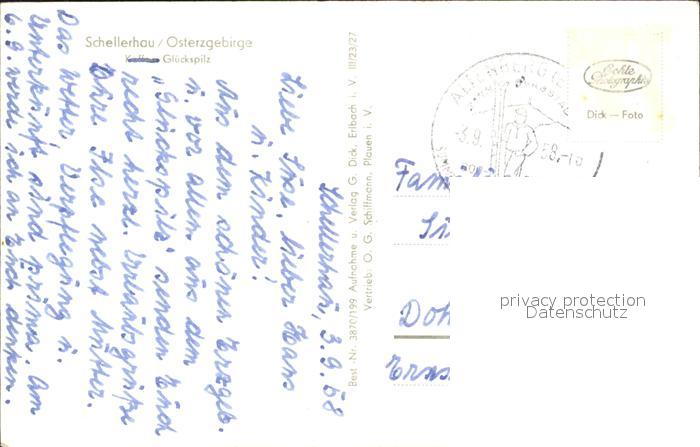 Schellerhau / Osterzgebirge
Glückspilz
Schellerhau, 3.9.58
Liebe Inge, lieber Hans
u. Kinder!
Aus dem schönen Erzgeb.
u. vor allen aus dem
"Glückspilz" senden Euch
recht herzl. Urlaubsgrüße
Eure Ilse nebst Mutter.
Das Wetter, Verpflegung u.
Unterkunft sind prima. Am
6.9. werde ich an Euch denken.
Best.-Nr. 3870/199 Aufnahme u. Verlag G. Dick, Erlbach i. V. III/23/27
Vertrieb: O. G. Schiffmann, Plauen i. V.
ALTENBERG
-3.9.58.-10
Echte
Photographie
Dick — Foto
Fam
Doh
privacy protection
Datenschutz